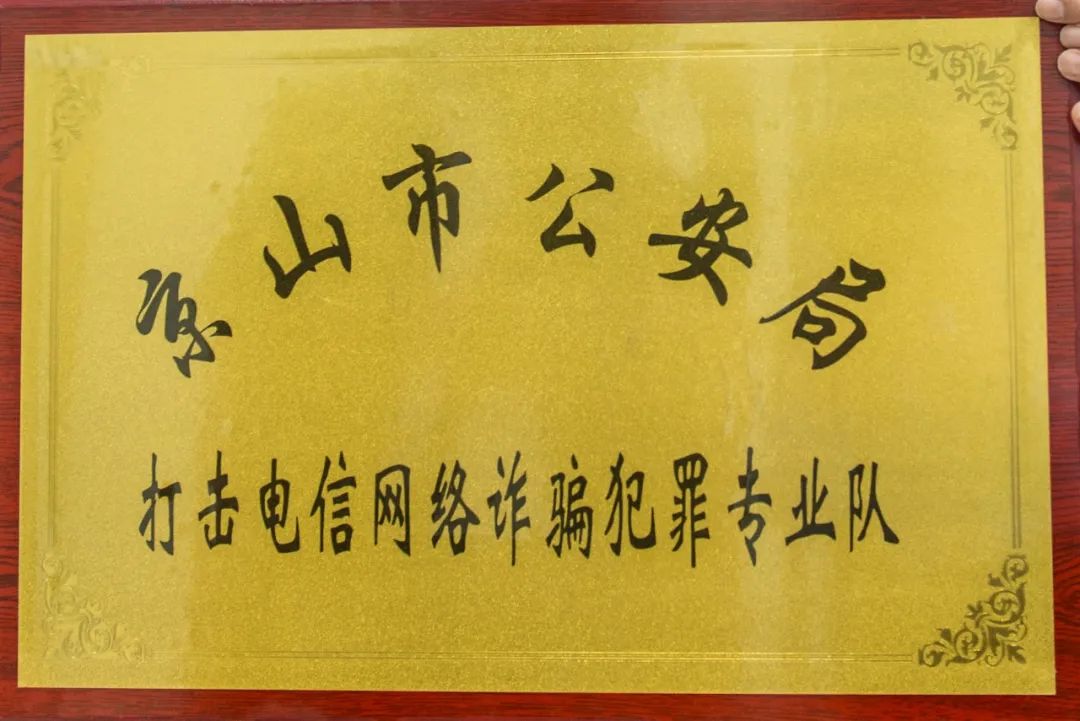 京山市公安局
打击电信网络诈骗犯罪专业队